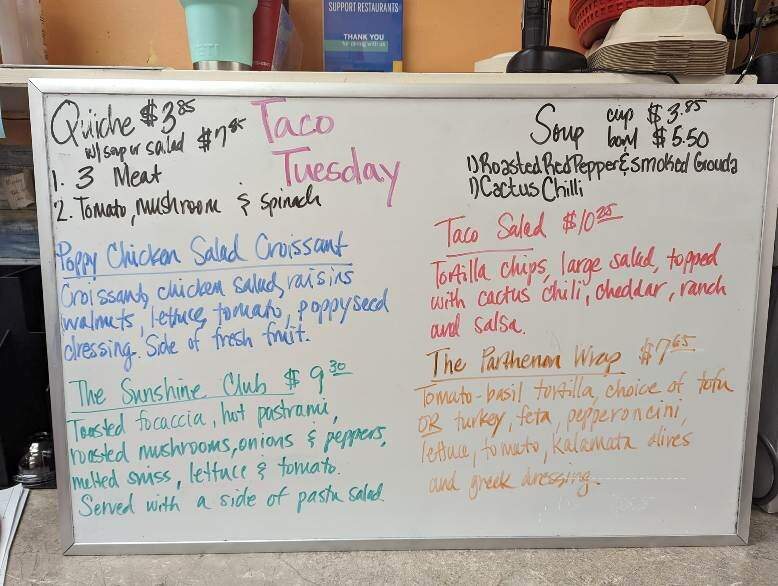 SUPPORT RESTAURANTS
THANK YOU
for dining with us
YETI
Quiche $3.85
w/ soup or salad $7.85
1. 3 Meat
2. Tomato, mushroom & spinach
Taco
Tuesday
Soup cup $3.85
bowl $5.50
1) Roasted Red Pepper & smoked Gouda
1) Cactus Chilli
Poppy Chicken Salad Croissant
Croissant, chicken salad, raisins
walnuts, lettuce, tomato, poppyseed
dressing. Side of fresh fruit.
Taco Salad $10.25
Tortilla chips, large salad, topped
with cactus chili, cheddar, ranch
and salsa.
The Sunshine Club $9.30
Toasted focaccia, hot pastrami,
roasted mushrooms, onions & peppers,
melted swiss, lettuce & tomato.
Served with a side of pasta salad
The Parthenon Wrap $7.65
Tomato-basil tortilla, choice of tofu
OR turkey, feta, pepperoncini,
lettuce, tomato, kalamata olives
and greek dressing.